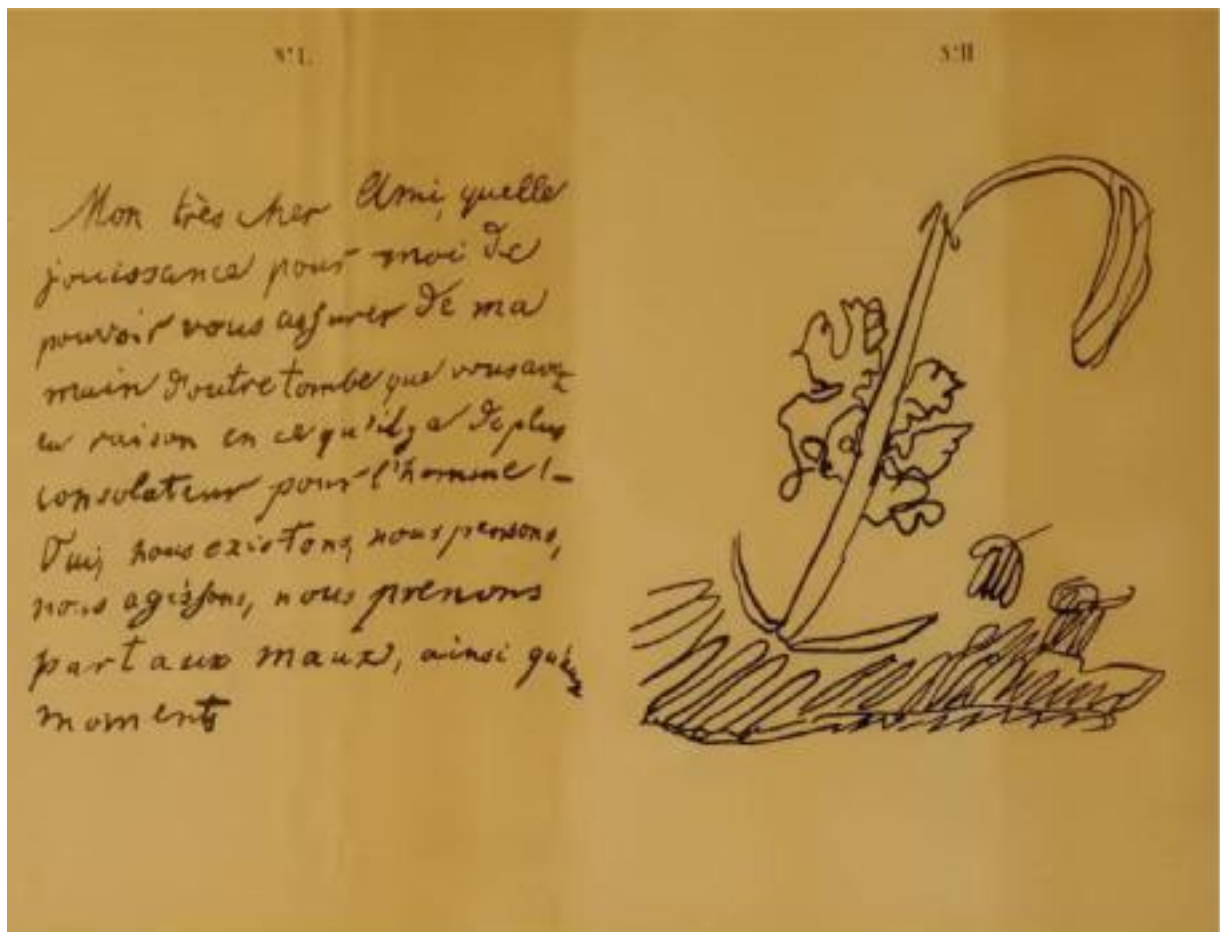 N° I.
N° II
Mon très cher Ami, quelle
jouissance pour moi de
pouvoir vous assurer de ma
main d'outre tombe que vous avez
eu raison en ce qu'il y a de plus
consolateur pour l'homme !—
Oui, nous existons, nous pensons,
nous agissons, nous prenons
part aux maux, ainsi qu'aux
moments